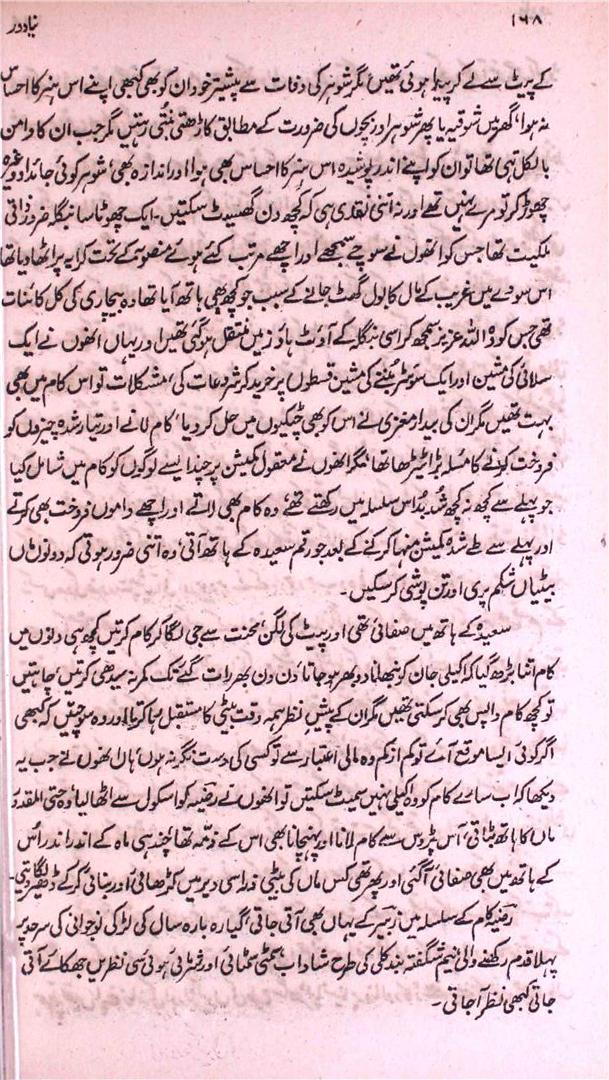 نیا دور
۱۶۸
کے پیٹ سے لے کر پیدا ہوئی تھیں، مگر شوہر کی وفات سے پیشتر خود ان کو بھی کبھی اپنے اس ہنر کا احساس
نہ ہوا، گھر میں شوقیہ یا پھر شوہر اور بچوں کی ضرورت کے مطابق کاڑھتی بنتی رہتیں مگر جب ان کا دامن
بالکل تہی تھا تو ان کو اپنے اندر پوشیدہ اس ہنر کا احساس بھی ہوا اور اندازہ بھی، شوہر کوئی جائداد وغیرہ
چھوڑ کر تو مرے نہیں تھے اور نہ اتنی نقدی ہی کہ کچھ دن گھسیٹ سکتیں۔ ایک چھوٹا سا بنگلہ ضرور ذاتی
ملکیت تھا جس کو انھوں نے سوچے سمجھے اور اچھے مرتب کئے ہوئے منصوبے کے تحت کرایہ پر اٹھا دیا تھا
اس سودے میں غریب کے مال کا بول گھٹ جانے کے سبب جو کچھ بھی ہاتھ آیا تھا وہ بیچاری کی کل کائنات
تھی جس کو وہ اللہ عزیز سمجھ کر اسی بنگلہ کے آؤٹ ہاؤز میں منتقل ہو گئی تھیں اور یہاں انھوں نے ایک
سلائی کی مشین اور ایک سوئٹر بننے کی مشین قسطوں پر خرید کر شروعات کی، مشکلات تو اس کام میں بھی
بہت تھیں مگر ان کی بیدار مغزی نے اس کو بھی چٹکیوں میں حل کر دیا، کام لانے اور تیار شدہ چیزوں کو
فروخت کرنے کا مسئلہ بڑا ٹیڑھا تھا، مگر انھوں نے معقول کمیشن پر چند ایسے لوگوں کو کام میں شامل کیا
جو پہلے سے کچھ نہ کچھ شد بد اس سلسلہ میں رکھتے تھے، وہ کام بھی لاتے اور اچھے داموں فروخت بھی کرتے
اور پہلے سے طے شدہ کمیشن منہا کرنے کے بعد جو رقم سعیدہ کے ہاتھ آتی، وہ اتنی ضرور ہوتی کہ دونوں ماں
بیٹیاں شکم پری اور تن پوشی کر سکیں۔
سعیدہ کے ہاتھ میں صفائی تھی اور پیٹ کی لگن، محنت سے جی لگا کر کام کرتیں کچھ ہی دنوں میں
کام اتنا بڑھ گیا کہ اکیلی جان کو نبھانا دوبھر ہو جاتا، دن دن بھر رات گئے تک کمر نہ سیدھی کرتیں، چاہتیں
تو کچھ کام واپس بھی کر سکتی تھیں مگر ان کے پیش نظر ہمہ وقت بیٹی کا مستقبل رہا کرتا اور وہ سوچتیں کہ کبھی
اگر کوئی ایسا موقع آئے تو کم از کم وہ مالی اعتبار سے تو کسی کی دست نگر نہ ہوں، ہاں انھوں نے جب یہ
دیکھا کہ اب سارے کام کو وہ اکیلی نہیں سمیٹ سکتیں تو انھوں نے رضیہ کو اسکول سے اٹھا لیا، وہ حتی المقدور
ماں کا ہاتھ بٹاتی، آس پڑوس سے کام لانا اور پہنچانا بھی اس کے ذمہ تھا، چند ہی ماہ کے اندر اندر اس
کے ہاتھ میں بھی صفائی آ گئی اور پھر تھی کس ماں کی بیٹی ذرا سی دیر میں کڑھائی اور بنائی کر کے ڈھیر لگا دیتی۔
رضیہ کام کے سلسلہ میں زبیر کے یہاں بھی آتی جاتی، گیارہ بارہ سال کی لڑکی نوجوانی کی سرحد پر
پہلا قدم رکھنے والی نیم شگفتہ بند کلی کی طرح شاداب، سمٹی سمٹائی اور شرمائی ہوئی سی نظریں جھکائے آتی
جاتی کبھی نظر آ جاتی۔